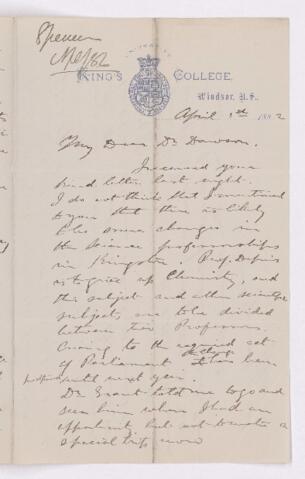 Spencer
Apl/82
KING'S COLLEGE.
Windsor, N.S.
April 3rd 1882
My Dear Dr Dawson.
I received your
kind letter last night.
I do not think that I mentioned
to you that there is likely
to be some changes in
the science professorships
in Kingston. Prof. Dupuis
is to give up Chemistry, and
this subject and other scientific
subjects, are to be divided
between two Professors.
Owing to the required act
of Parliament the change has been
postponed until next year.
Dr Grant told me to go and
see him when I had an
opportunity but not to make a
special trip now